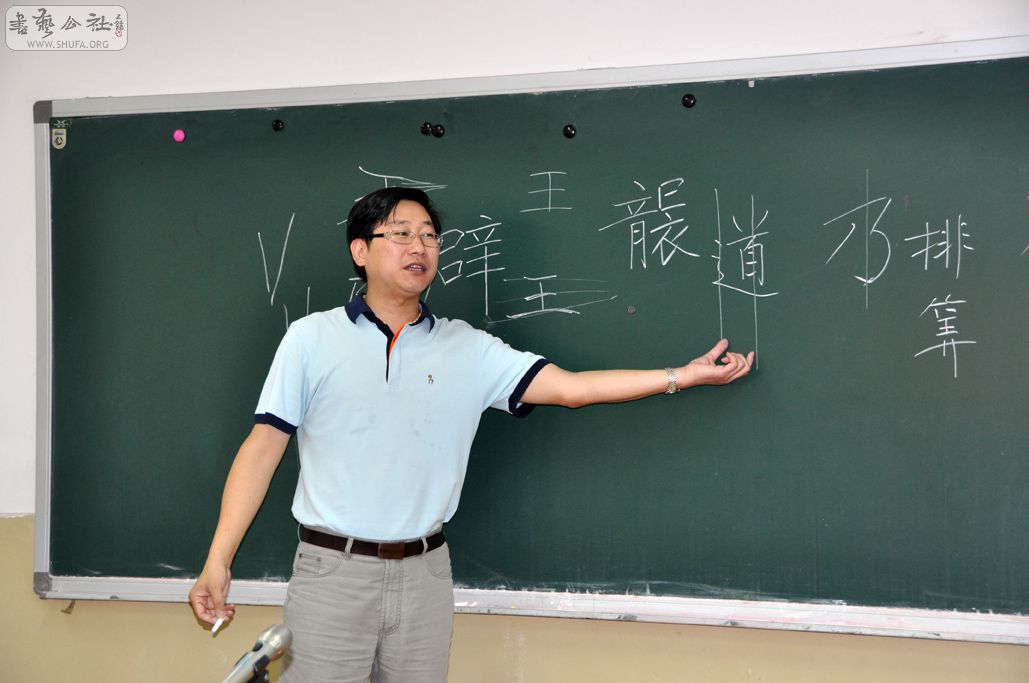 書藝公社
WWW.SHUFA.ORG
王
辟 王 道 乃 排